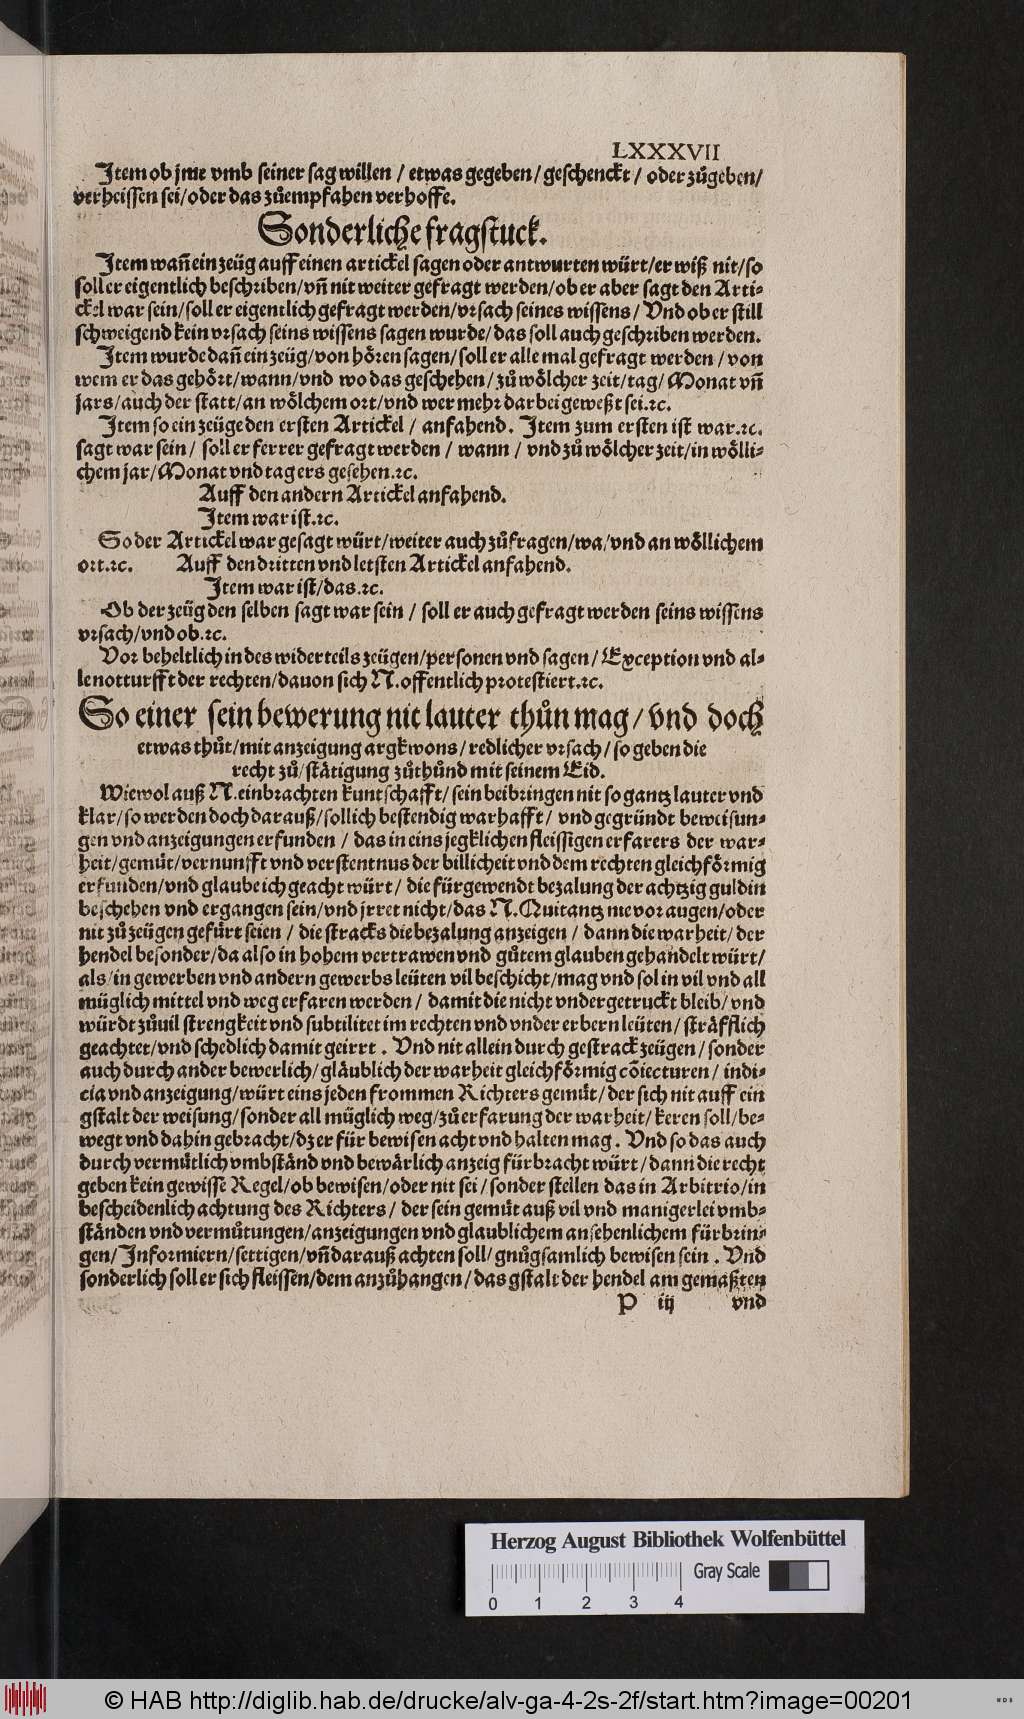 LXXXVII
Item ob jme vmb seiner sag willen / etwas gegeben / geschenckt / oder zůgeben /
verheissen sei / oder das zůempfahen verhoffe.
Sonderliche fragstuck.
Item wañ ein zeüg auff einen artickel sagen oder antwurten würt / er wiß nit / so
soll er eigentlich beschriben / vñ nit weiter gefragt werden / ob er aber sagt den Arti-
ckel war sein / soll er eigentlich gefragt werden / vrsach seines wissens / Vnd ob er still
schweigend kein vrsach seins wissens sagen wurde / das soll auch geschriben werden.
Item wurde dañ ein zeüg / von hören sagen / soll er alle mal gefragt werden / von
wem er das gehört / wann / vnd wo das geschehen / zů wölcher zeit / tag / Monat vñ
jars / auch der statt / an wölchem ort / vnd wer mehr darbei geweßt sei. ꝛc.
Item so ein zeüge den ersten Artickel / anfahend. Item zum ersten ist war. ꝛc.
sagt war sein / soll er ferrer gefragt werden / wann / vnd zů wölcher zeit / in wölli-
chem jar / Monat vnd tag ers gesehen. ꝛc.
Auff den andern Artickel anfahend.
Item war ist. ꝛc.
So der Artickel war gesagt würt / weiter auch zůfragen / wa / vnd an wöllichem
ort. ꝛc. Auff den dritten vnd letsten Artickel anfahend.
Item war ist / das. ꝛc.
Ob der zeüg den selben sagt war sein / soll er auch gefragt werden seins wissens
vrsach / vnd ob. ꝛc.
Vor beheltlich in des widerteils zeügen / personen vnd sagen / Exception vnd al-
le notturfft der rechten / dauon sich N. offentlich protestiert. ꝛc.
So einer sein bewerung nit lauter thůn mag / vnd doch
etwas thůt / mit anzeigung argkwons / redlicher vrsach / so geben die
recht zů / stätigung zůthůnd mit seinem Eid.
Wiewol auß N. einbrachten kuntschafft / sein beibringen nit so gantz lauter vnd
klar / so werden doch darauß / sollich bestendig warhafft / vnd gegründt beweisun-
gen vnd anzeigungen erfunden / das in eins jegklichen fleissigen erfarers der war-
heit / gemüt / vernunfft vnd verstentnus der billicheit vnd dem rechten gleichförmig
erfunden / vnd glaube ich geacht würt / die fürgewendt bezalung der achtzig guldin
beschehen vnd ergangen sein / vnd jrret nicht / das N. Quitantz nie vor augen / oder
nit zů zeügen gefürt seien / die stracks die bezalung anzeigen / dann die warheit / der
hendel besonder / da also in hohem vertrawen vnd gůtem glauben gehandelt würt /
als / in gewerben vnd andern gewerbs leüten vil beschicht / mag vnd sol in vil vnd all
müglich mittel vnd weg erfaren werden / damit die nicht vndergetruckt bleib / vnd
würdt zůuil strengkeit vnd subtilitet im rechten vnd vnder erbern leüten / sträfflich
geachtet / vnd schedlich damit geirrt . Vnd nit allein durch gestrack zeügen / sonder
auch durch ander bewerlich / gläublich der warheit gleichförmig cõiecturen / indi-
cia vnd anzeigung / würt eins jeden frommen Richters gemüt / der sich nit auff ein
gstalt der weisung / sonder all müglich weg / zů erfarung der warheit / keren soll / be-
wegt vnd dahin gebracht / dz er für bewisen acht vnd halten mag . Vnd so das auch
durch vermütlich vmbständ vnd bewärlich anzeig fürbracht würt / dann die recht
geben kein gewisse Regel / ob bewisen / oder nit sei / sonder stellen das in Arbitrio / in
bescheidenlich achtung des Richters / der sein gemüt auß vil vnd manigerlei vmb-
ständen vnd vermůtungen / anzeigungen vnd glaublichem ansehenlichem fürbrin-
gen / Informiern / settigen / vñ darauß achten soll / gnůgsamlich bewisen sein . Vnd
sonderlich soll er sich fleissen / dem anzůhangen / das gstalt der hendel am gemäßten
P iij vnd
Herzog August Bibliothek Wolfenbüttel
Gray Scale
0 1 2 3 4
© HAB http://diglib.hab.de/drucke/alv-ga-4-2s-2f/start.htm?image=00201